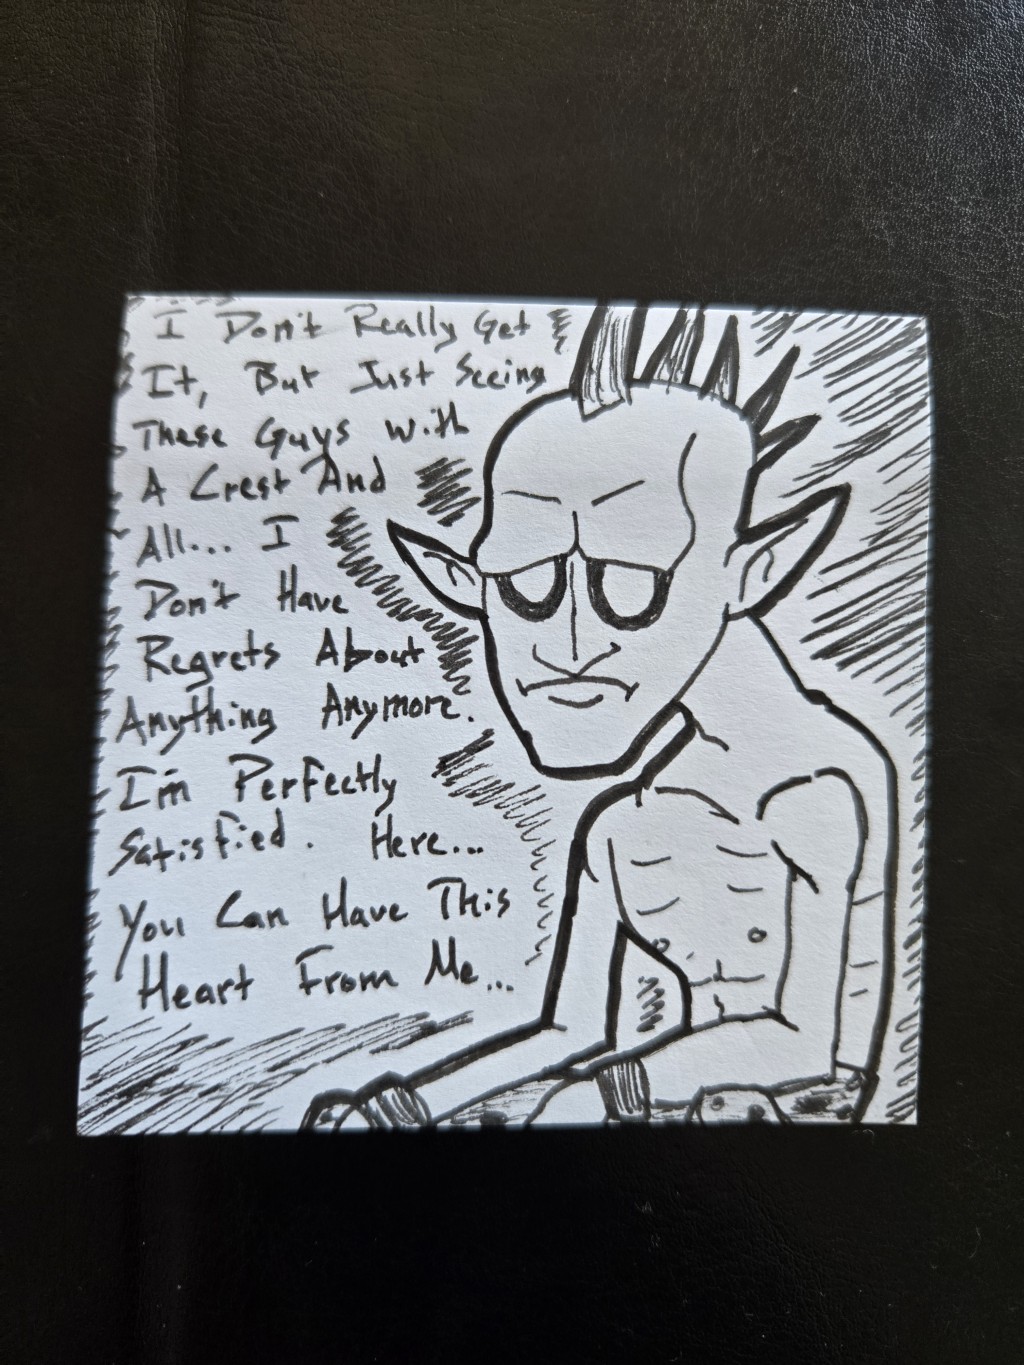 I Don't Really Get
It, But Just Seeing
These Guys With
A Crest And
All... I
Don't Have
Regrets About
Anything Anymore.
I'm Perfectly
Satisfied. Here...
You Can Have This
Heart From Me...